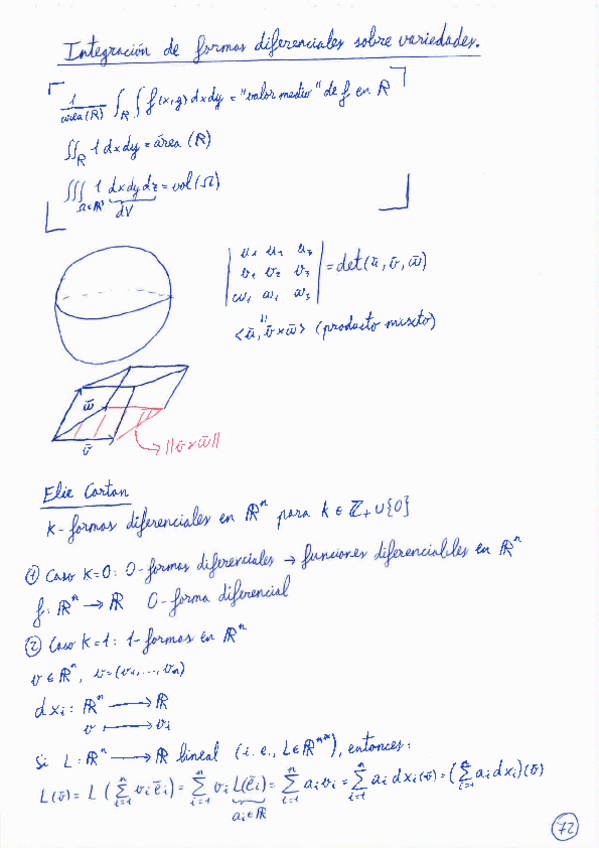 Integración de formas diferenciales sobre variedades.
1/área(R) ∫_R ∫ f(x,y) dxdy = "valor medio" de f en R
∬_R 1 dxdy = área (R)
∭_{Ω∈R³} 1 dxdydz = vol(Ω)
dV
| u₁ u₂ u₃ |
| v₁ v₂ v₃ | = det(ū, v̄, w̄)
| w₁ w₂ w₃ |
=
<ū, v̄×w̄> (producto mixto)
w̄
v̄
→ ||v̄×w̄||
Elie Cartan
K-formas diferenciales en ℝⁿ para k ∈ ℤ₊ ∪ {0}
① Caso K=0: 0-formas diferenciales → funciones diferenciables en ℝⁿ
f: ℝⁿ → ℝ 0-forma diferencial
② Caso K=1: 1-formas en ℝⁿ
v ∈ ℝⁿ, v=(v₁,...,vₙ)
dxᵢ: ℝⁿ → ℝ
v ↦ vᵢ
Si L: ℝⁿ → ℝ lineal (i.e., L∈ℝⁿ*), entonces:
L(v̄) = L (∑_{i=1}^n vᵢ ēᵢ) = ∑_{i=1}^n vᵢ L(ēᵢ) = ∑_{i=1}^n aᵢ vᵢ = ∑_{i=1}^n aᵢ dxᵢ(v̄) = (∑_{i=1}^n aᵢ dxᵢ)(v̄)
aᵢ∈ℝ
72